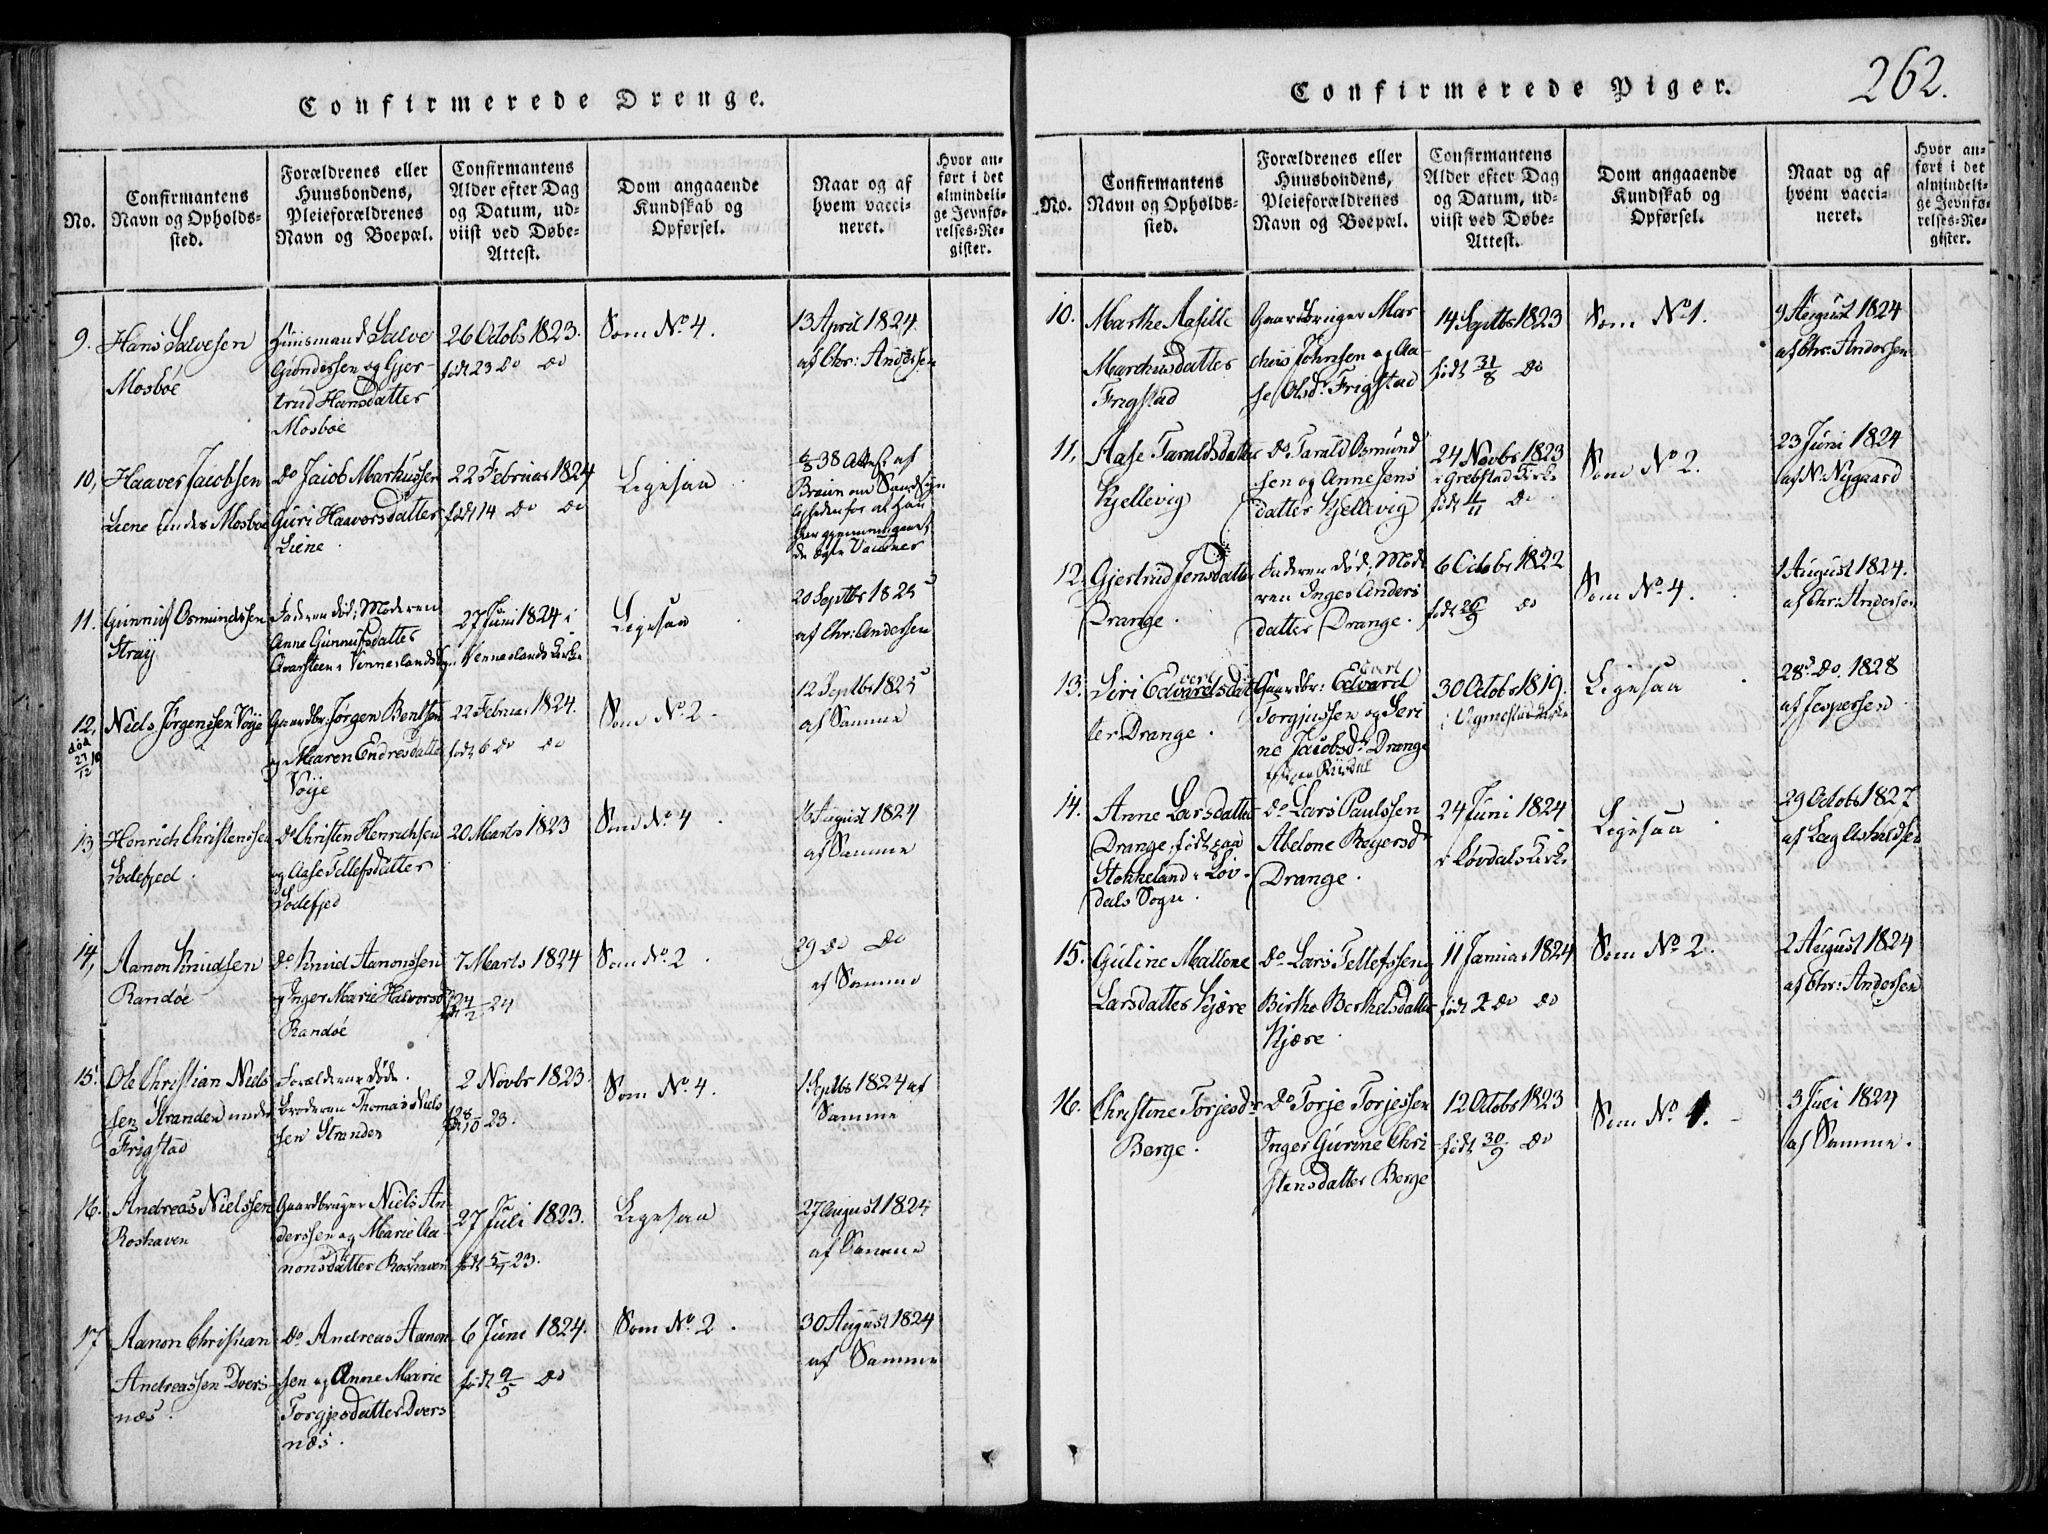 Confirmerede Drenge.
No.
Confirmantens
Navn og Opholds-
sted.
Forældrenes eller
Huusbondens,
Pleieforældrenes
Navn og Boepæl.
Confirmantens
Alder efter Dag
og Datum, ud-
viist ved Døbe-
Attest.
Dom angaaende
Kundskab og
Opførsel.
Naar og af
hvem vacci-
neret.
Hvor an-
ført i det
almindeli-
ge Jevnfø-
relses-Re-
gister.
9.
Hans Salvesen
Mosbøe
Huusmand Salve
Gundersen og Gjer-
trud Hansdatter
Mosbøe
26 Octobr 1823.
født 23 do do
Som No 4.
13 April 1824
af Chr: Andersen
10,
Haaver Jacobsen
Liene under Mosbøe
do Jacob Markussen
Guri Haaversdatter
Liene.
22 Februar 1824
født 14 do do
Ligesaa
6/8 38 Attest af
Bruun om Sandsyn
ligheden for at han
har gjennemgaaet
de ægte Vacciner
11.
Gunnuf Osmundssen
Straÿ
Faderen død; Moderen
Anne Gunnufsdatter
Qvarsteen i Venneslands
27 Juni 1824 i
Venneslands Kirke
Ligesaa
20 Septbr 1825
af Chr: Andersen
12,
død
27/12
Niels Jørgenssen Vøÿe
Gaardbr: Jørgen Bentsen
og Maren Endresdatter
Vøÿe
22 Februar 1824.
født 6 do do
Som No 2.
12 Septbr 1825
af Samme
13,
Henrich Christenssen
Dodefjed.
do Christen Henrichsen
og Aase Tellefsdatter
Dodefjed
20 Marts 1823
Som No 4.
16 August 1824
af Samme
14,
Aanon Knudsen
Randøe
do Knud Aanonssen
og Inger Marie Halvorsdr
Randøe
7 Marts 1824
født 24/2 - 24
Som No 2.
29 do do
af Samme
15.
Ole Christian Niels
sen Stranden under
Frigstad
Forældrene døde.
Broderen Thomas Niels
sen Stranden
2 Novbr 1823.
født 28/10 23.
Som No 4.
1 Septbr 1824 af
Samme
16.
Andreas Nielssen
Roshaven
Gaardbruger Niels An-
derssen og Marie Aa-
nonsdatter Roshaven
27 Juli 1823.
født 5/7 23.
Ligesaa
27 August 1824
af Samme
17
Aanon Christian
Andreassen Dvers-
næs.
do Andreas Aanon
sen og Anne Marie
Torgjesdatter Dvers
næs.
6 Juni 1824.
født 9/5 do
Som No 2.
30 August 1824
af Samme
Confirmerede Piger.
262.
No.
Confirmantens
Navn og Opholds-
sted.
Forældrenes eller
Huusbondens,
Pleieforældrenes
Navn og Boepæl.
Confirmantens
Alder efter Dag
og Datum, ud-
viist ved Døbe-
Attest.
Dom angaaende
Kundskab og
Opførsel.
Naar og af
hvem vacci-
neret.
Hvor an-
ført i det
almindeli-
ge Jevnfø-
relses-Re-
gister.
10.
Marthe Aasille
Marchusdatter
Frigstad
Gaardbruger Mar
chus Johnsen og Aa-
se Olsdr. Frigstad
14 Septbr 1823
født 31/8 do
Som No 1.
9 August 1824
af Chr: Andersen
11,
Aase Taraldsdatter
Kjellevig
do Tarald Osmund
sen og Anne Jens
datter Kjellevig
24 Novbr 1823
i Grebstad Kirke
født 4/11 do
Som No 2.
23 Juni 1824
af N. Nygaard
12.
Gjertrud Jensdatter
Drange.
Faderen død; Mode
ren Inger Anders
datter Drange.
6 Octobr 1822
født 26/9 do
Som No 4.
1 August 1824.
af Chr: Andersen
13.
Siri Edvardsdat
ter Drange.
Gaardbr: Edvard
Torgjussen og Seri
ne Jacobsdr Drange
30 Octobr 1819.
i Øgnestad Kirke
Ligesaa
28 do 1828
af Jespersen
14.
Anne Larsdatter
Drange, født paa
Stokkeland i Løv-
dals Sogn.
do Lars Paulssen
Abelone Reyersdr
Drange.
24 Juni 1824
i Løvdals Kirke
Ligesaa
29 Octobr 1827
15.
Guline Mallene
Larsdatter Kjære
do Lars Tellefssen og
Birthe Berthelsdatter
Kjære.
11 Januar 1824
født 2 do do
Som No 2.
2 August 1824
af Chr: Andersen
16.
Christine Torjesdr
Berge.
do Torje Torjessen
Inger Gurine Chri
stensdatter Berge
12 Octobr 1823
født 30/9 do
Som No 1.
3 Juli 1824
af Samme.